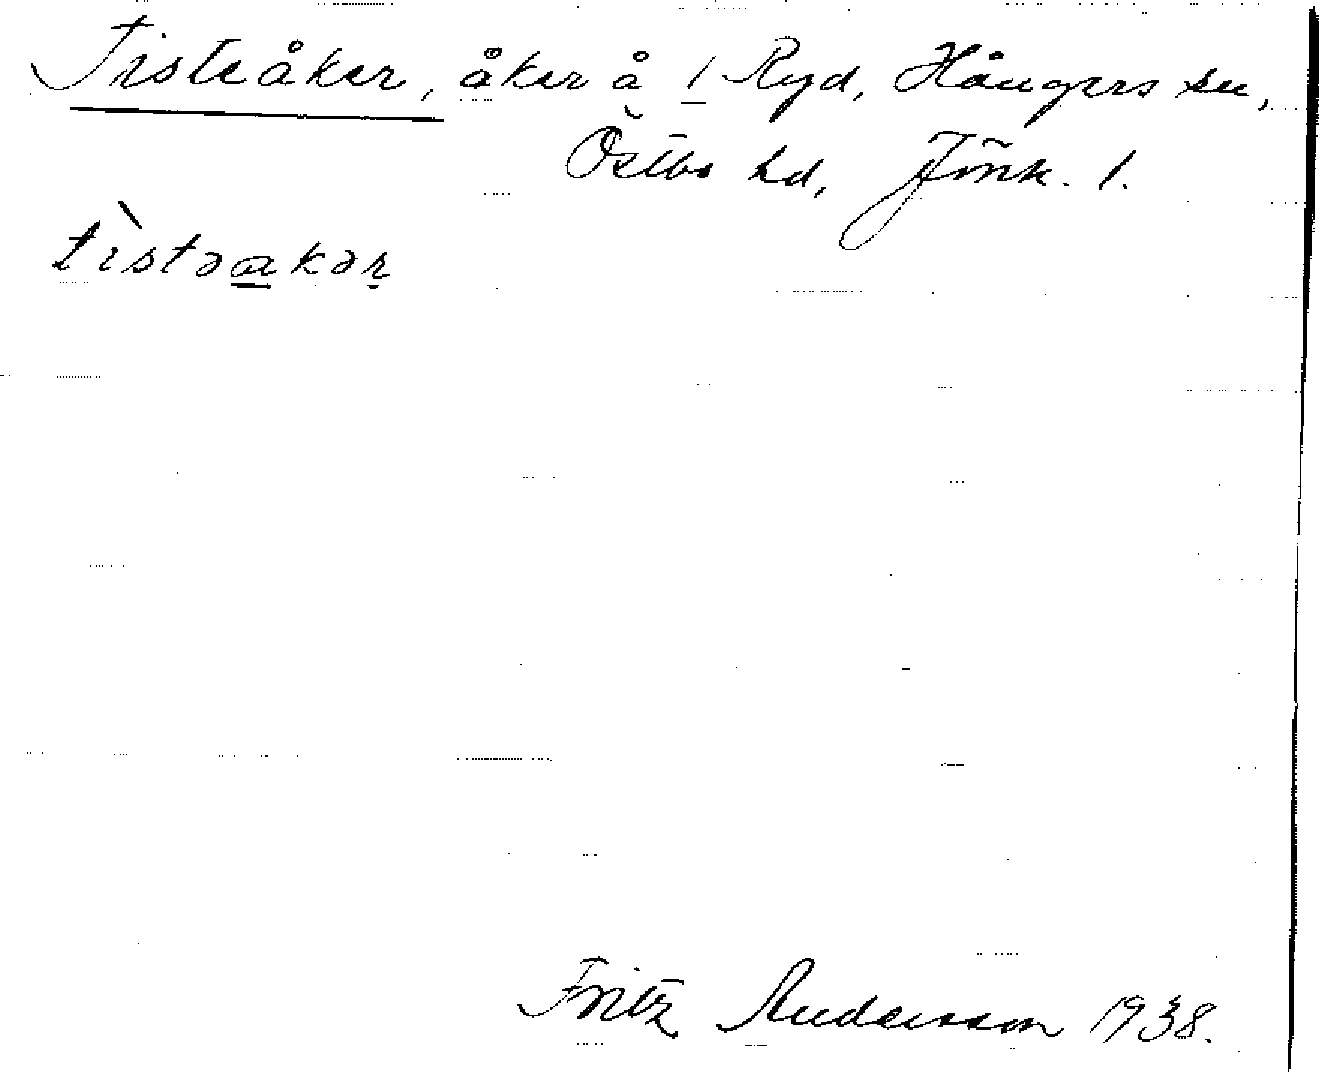 Tisteåker, åker å 1 Ryd, Hångers sn,
Östbo hd, Jönk. l.
tìstəakər
Fritz Andersson 1938.